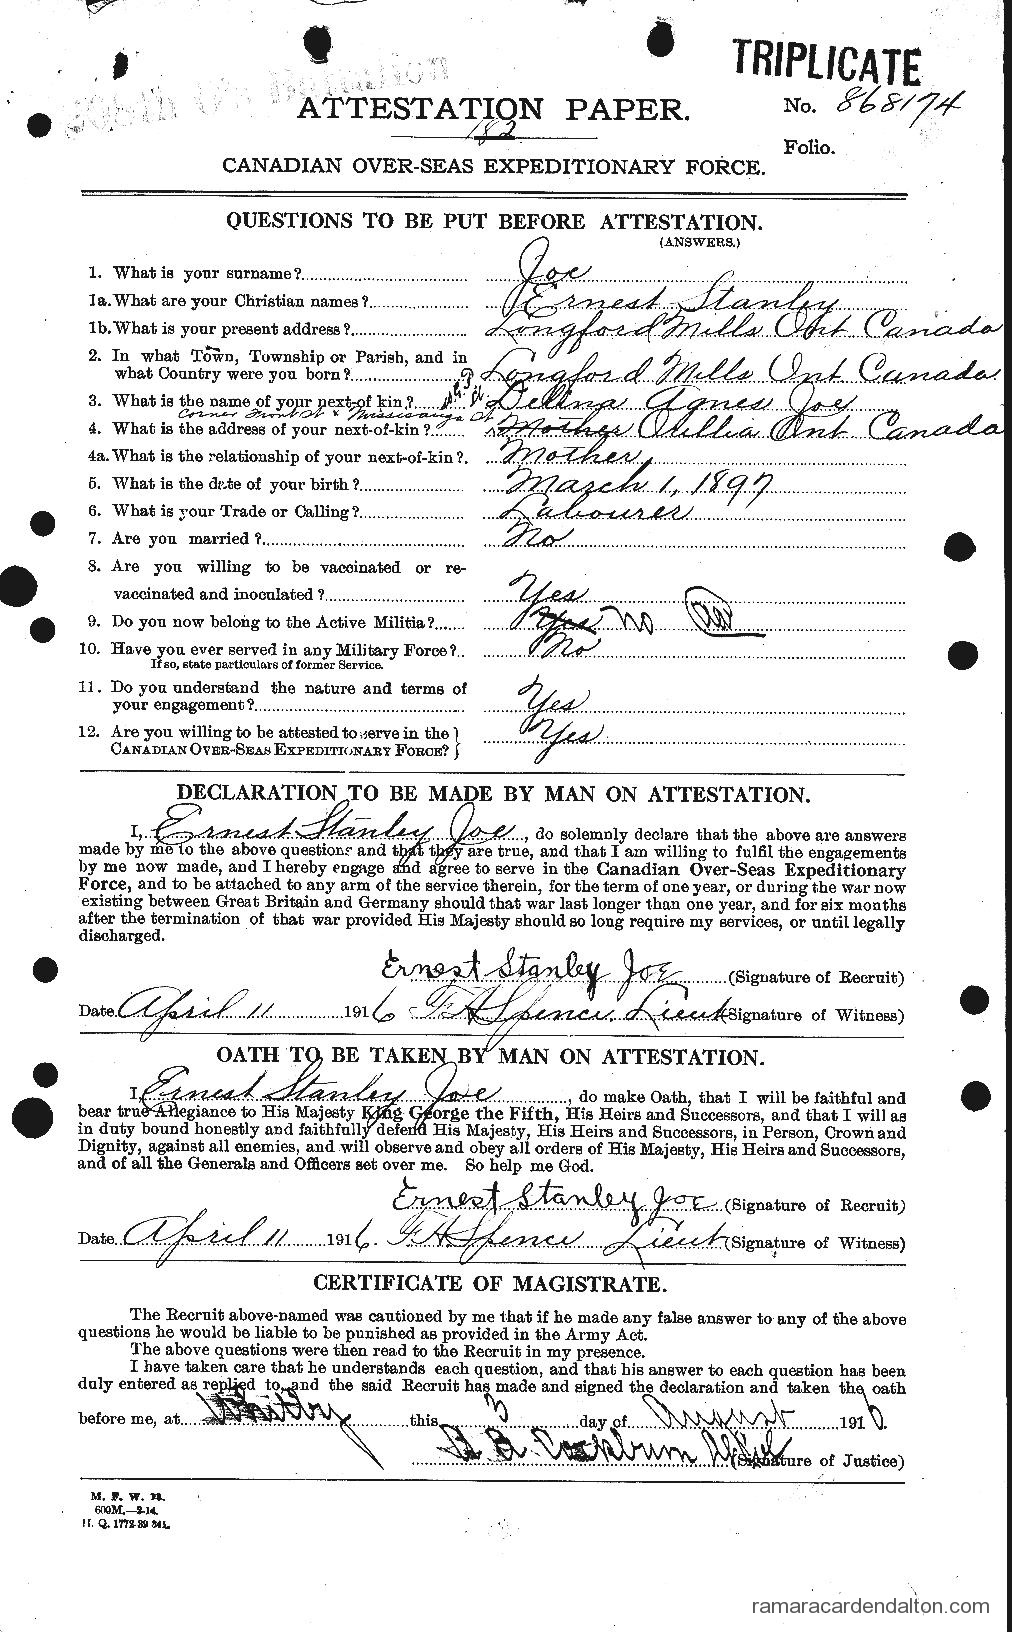 TRIPLICATE
ATTESTATION PAPER.
No. 868174
182
Folio.
CANADIAN OVER-SEAS EXPEDITIONARY FORCE.
QUESTIONS TO BE PUT BEFORE ATTESTATION.
(ANSWERS.)
1. What is your surname? Joe
1a. What are your Christian names? Ernest Stanley
1b. What is your present address? Longford Mills Ont Canada
2. In what Town, Township or Parish, and in
what Country were you born? Longford Mills Ont Canada
3. What is the name of your next-of kin? Dellna Agnes Joe
Corner Front St & Mississaga St
4. What is the address of your next-of-kin? Mother Orillia Ont Canada
4a. What is the relationship of your next-of-kin? Mother
5. What is the date of your birth? March 1, 1897
6. What is your Trade or Calling? Labourer
7. Are you married? No
8. Are you willing to be vaccinated or re-
vaccinated and inoculated? Yes
9. Do you now belong to the Active Militia? Yes No
10. Have you ever served in any Military Force? No
If so, state particulars of former Service.
11. Do you understand the nature and terms of
your engagement? Yes
12. Are you willing to be attested to serve in the
CANADIAN OVER-SEAS EXPEDITIONARY FORCE? Yes
DECLARATION TO BE MADE BY MAN ON ATTESTATION.
I, Ernest Stanley Joe, do solemnly declare that the above are answers
made by me to the above questions and that they are true, and that I am willing to fulfil the engagements
by me now made, and I hereby engage and agree to serve in the Canadian Over-Seas Expeditionary
Force, and to be attached to any arm of the service therein, for the term of one year, or during the war now
existing between Great Britain and Germany should that war last longer than one year, and for six months
after the termination of that war provided His Majesty should so long require my services, or until legally
discharged.
Ernest Stanley Joe (Signature of Recruit)
Date April 11 1916 F.H. Spence. Lieut (Signature of Witness)
OATH TO BE TAKEN BY MAN ON ATTESTATION.
I, Ernest Stanley Joe, do make Oath, that I will be faithful and
bear true Allegiance to His Majesty King George the Fifth, His Heirs and Successors, and that I will as
in duty bound honestly and faithfully defend His Majesty, His Heirs and Successors, in Person, Crown and
Dignity, against all enemies, and will observe and obey all orders of His Majesty, His Heirs and Successors,
and of all the Generals and Officers set over me. So help me God.
Ernest Stanley Joe (Signature of Recruit)
Date April 11 1916. F.H. Spence Lieut (Signature of Witness)
CERTIFICATE OF MAGISTRATE.
The Recruit above-named was cautioned by me that if he made any false answer to any of the above
questions he would be liable to be punished as provided in the Army Act.
The above questions were then read to the Recruit in my presence.
I have taken care that he understands each question, and that his answer to each question has been
duly entered as replied to, and the said Recruit has made and signed the declaration and taken the oath
before me, at Whitby this 3 day of August 1916.
Cockburn (Signature of Justice)
M. F. W. 23.
600M.—2-14.
H. Q. 1772-39 841.
ramaracardendalton.com